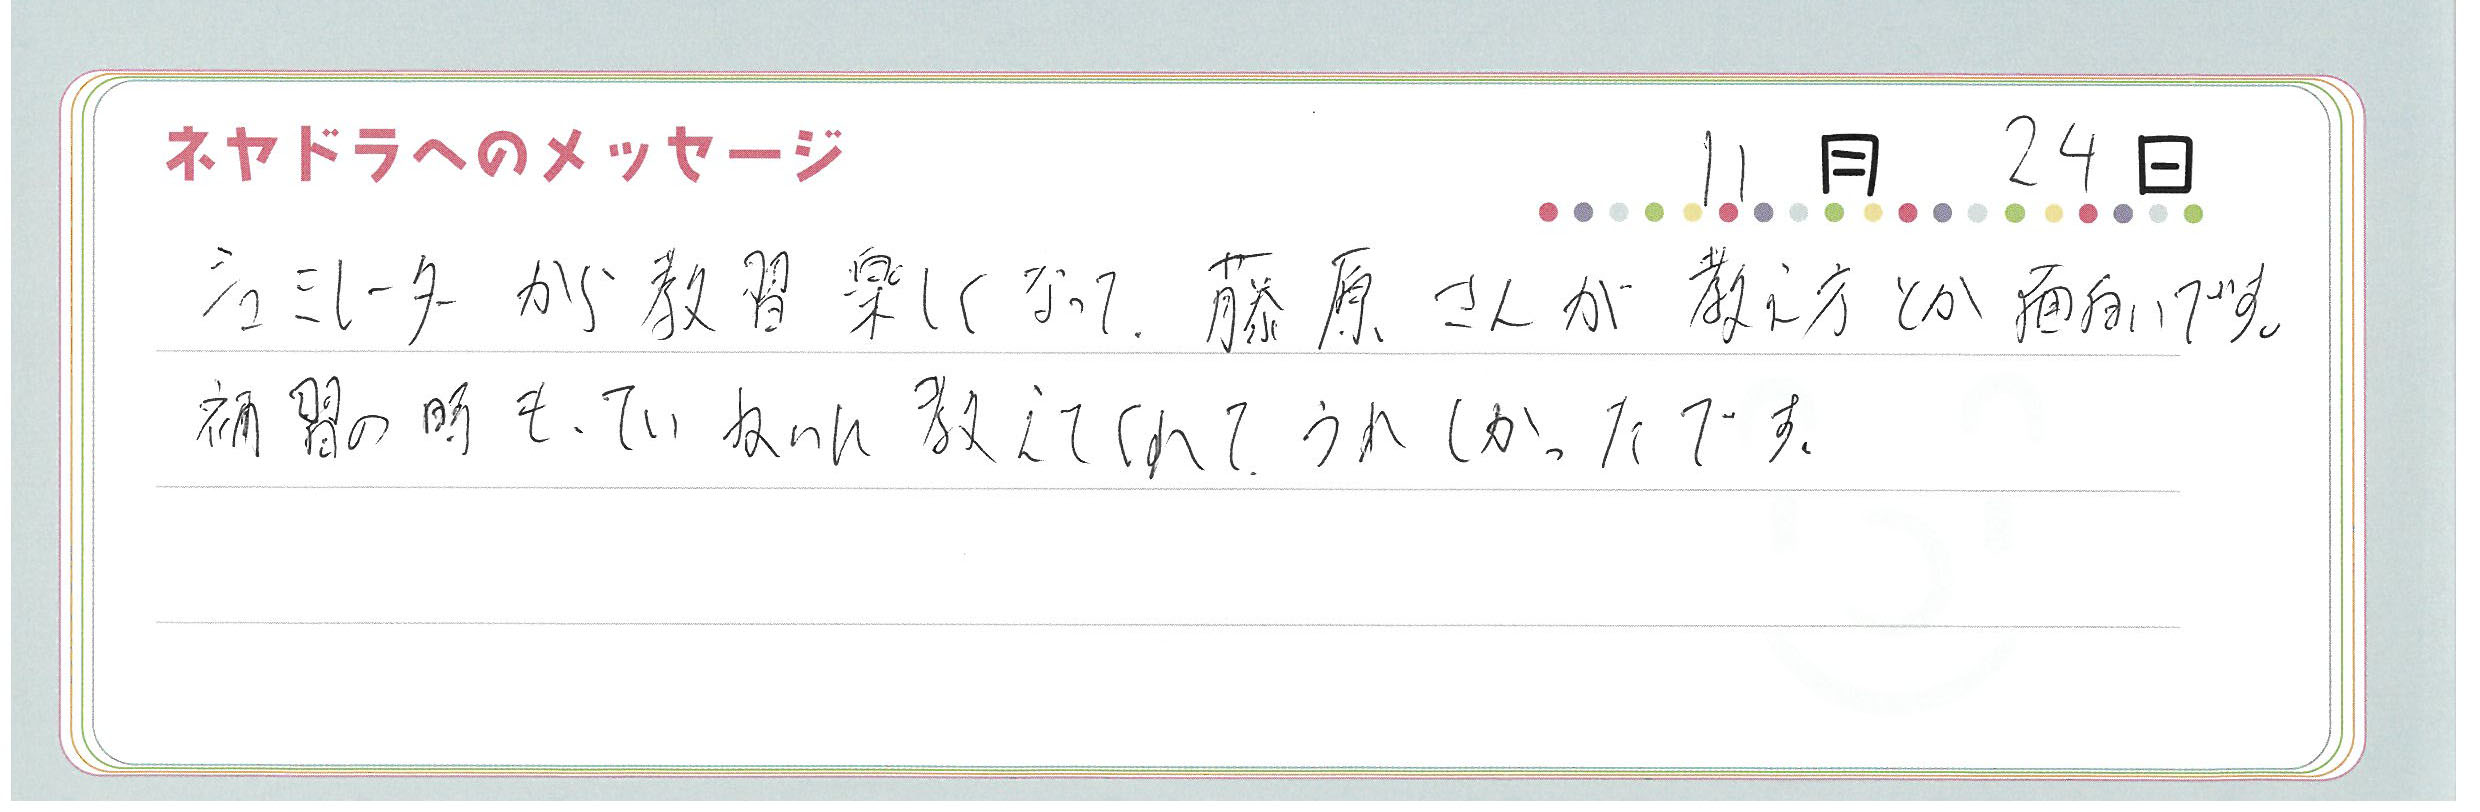 ネヤドラへのメッセージ
11月 24日
シュミレーターから教習楽しくなって、藤原さんが教え方とか面白いです。
補習の時も、ていねいに教えてくれて、うれしかったです。